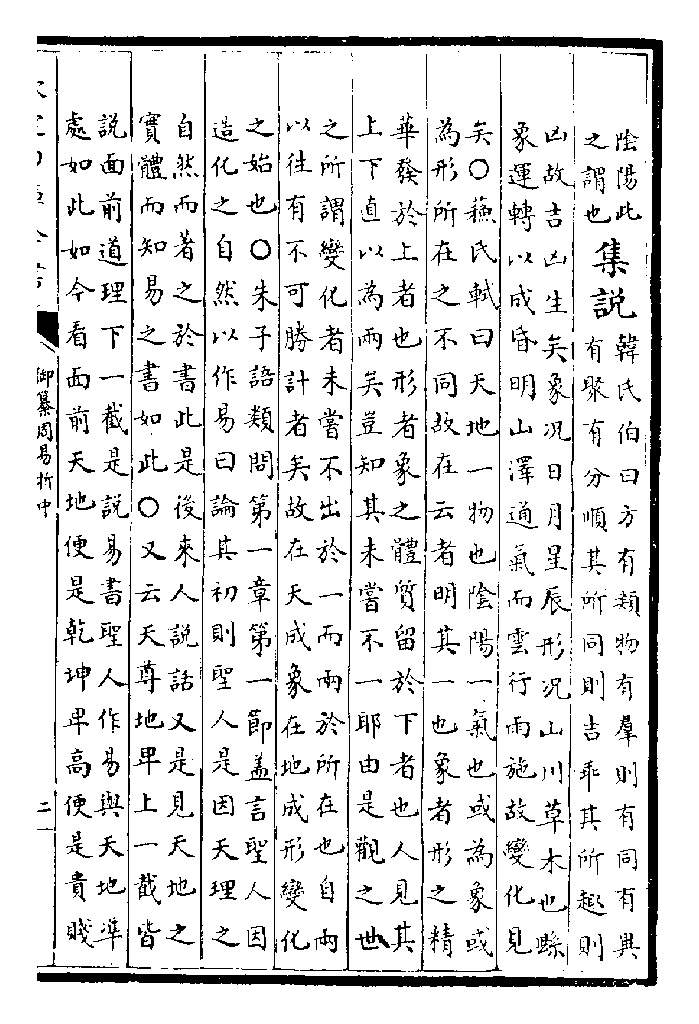 陰陽此
之謂也
集說
韓氏伯曰方有類物有羣則有同有異
有聚有分順其所同則吉乖其所趣則
凶故吉凶生矣象況日月星辰形況山川草木也縣
象運轉以成昏明山澤通氣而雲行雨施故變化見
矣○蘇氏軾曰天地一物也陰陽一氣也或為象或
為形所在之不同故在云者明其一也象者形之精
華發於上者也形者象之體質留於下者也人見其
上下直以為兩矣豈知其未嘗不一耶由是觀之世
之所謂變化者未嘗不出於一而兩於所在也自兩
以往有不可勝計者矣故在天成象在地成形變化
之始也○朱子語類問第一章第一節蓋言聖人因
造化之自然以作易曰論其初則聖人是因天理之
自然而著之於書此是後來人說話又是見天地之
實體而知易之書如此○又云天尊地卑上一截皆
說面前道理下一截是說易書聖人作易與天地準
處如此如今看面前天地便是乾坤卑高便是貴賤
御纂周易折中
二